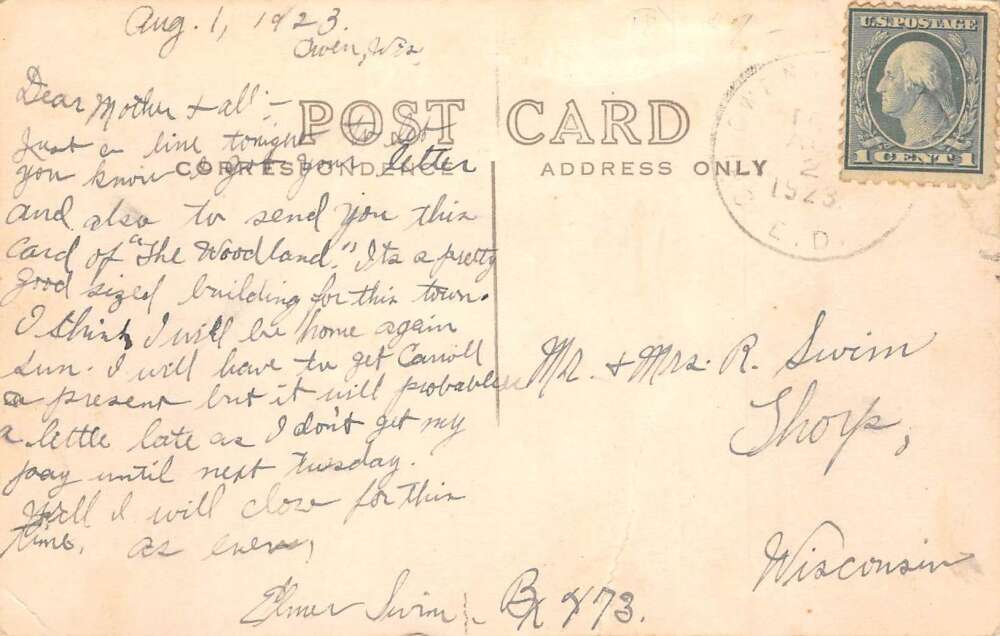 Aug. 1, 1923.
Owen, Wis,
Dear Mother & all:-
Just a line tonight to let
you know I got your letter
and also to send you this
card of "The Woodland." Its a pretty
good sized building for this town.
I think I will be home again
Sun. I will have to get Carroll
a present but it will probably be
a little late as I don't get my
pay until next Tuesday.
Well I will close for this
time, as ever,
Elmer Swim. Bx 473.
POST CARD
CORRESPONDENCE
ADDRESS ONLY
U.S. POSTAGE
1 CENT 1
2
1923
Mr. & Mrs. R. Swim
Thorp,
Wisconsin